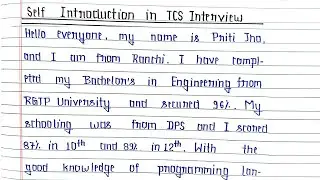 Self Introduction in TCS Interview
Hello everyone, my name is Priti Jha,
and I am from Ranchi. I have compl-
etrd my Bachelor's in Engineering from
RGTP University and secured 96%. My
schooling was from DPS and I scored
87% in 10th and 89% in 12th. With the
good knowledge of programming lan-